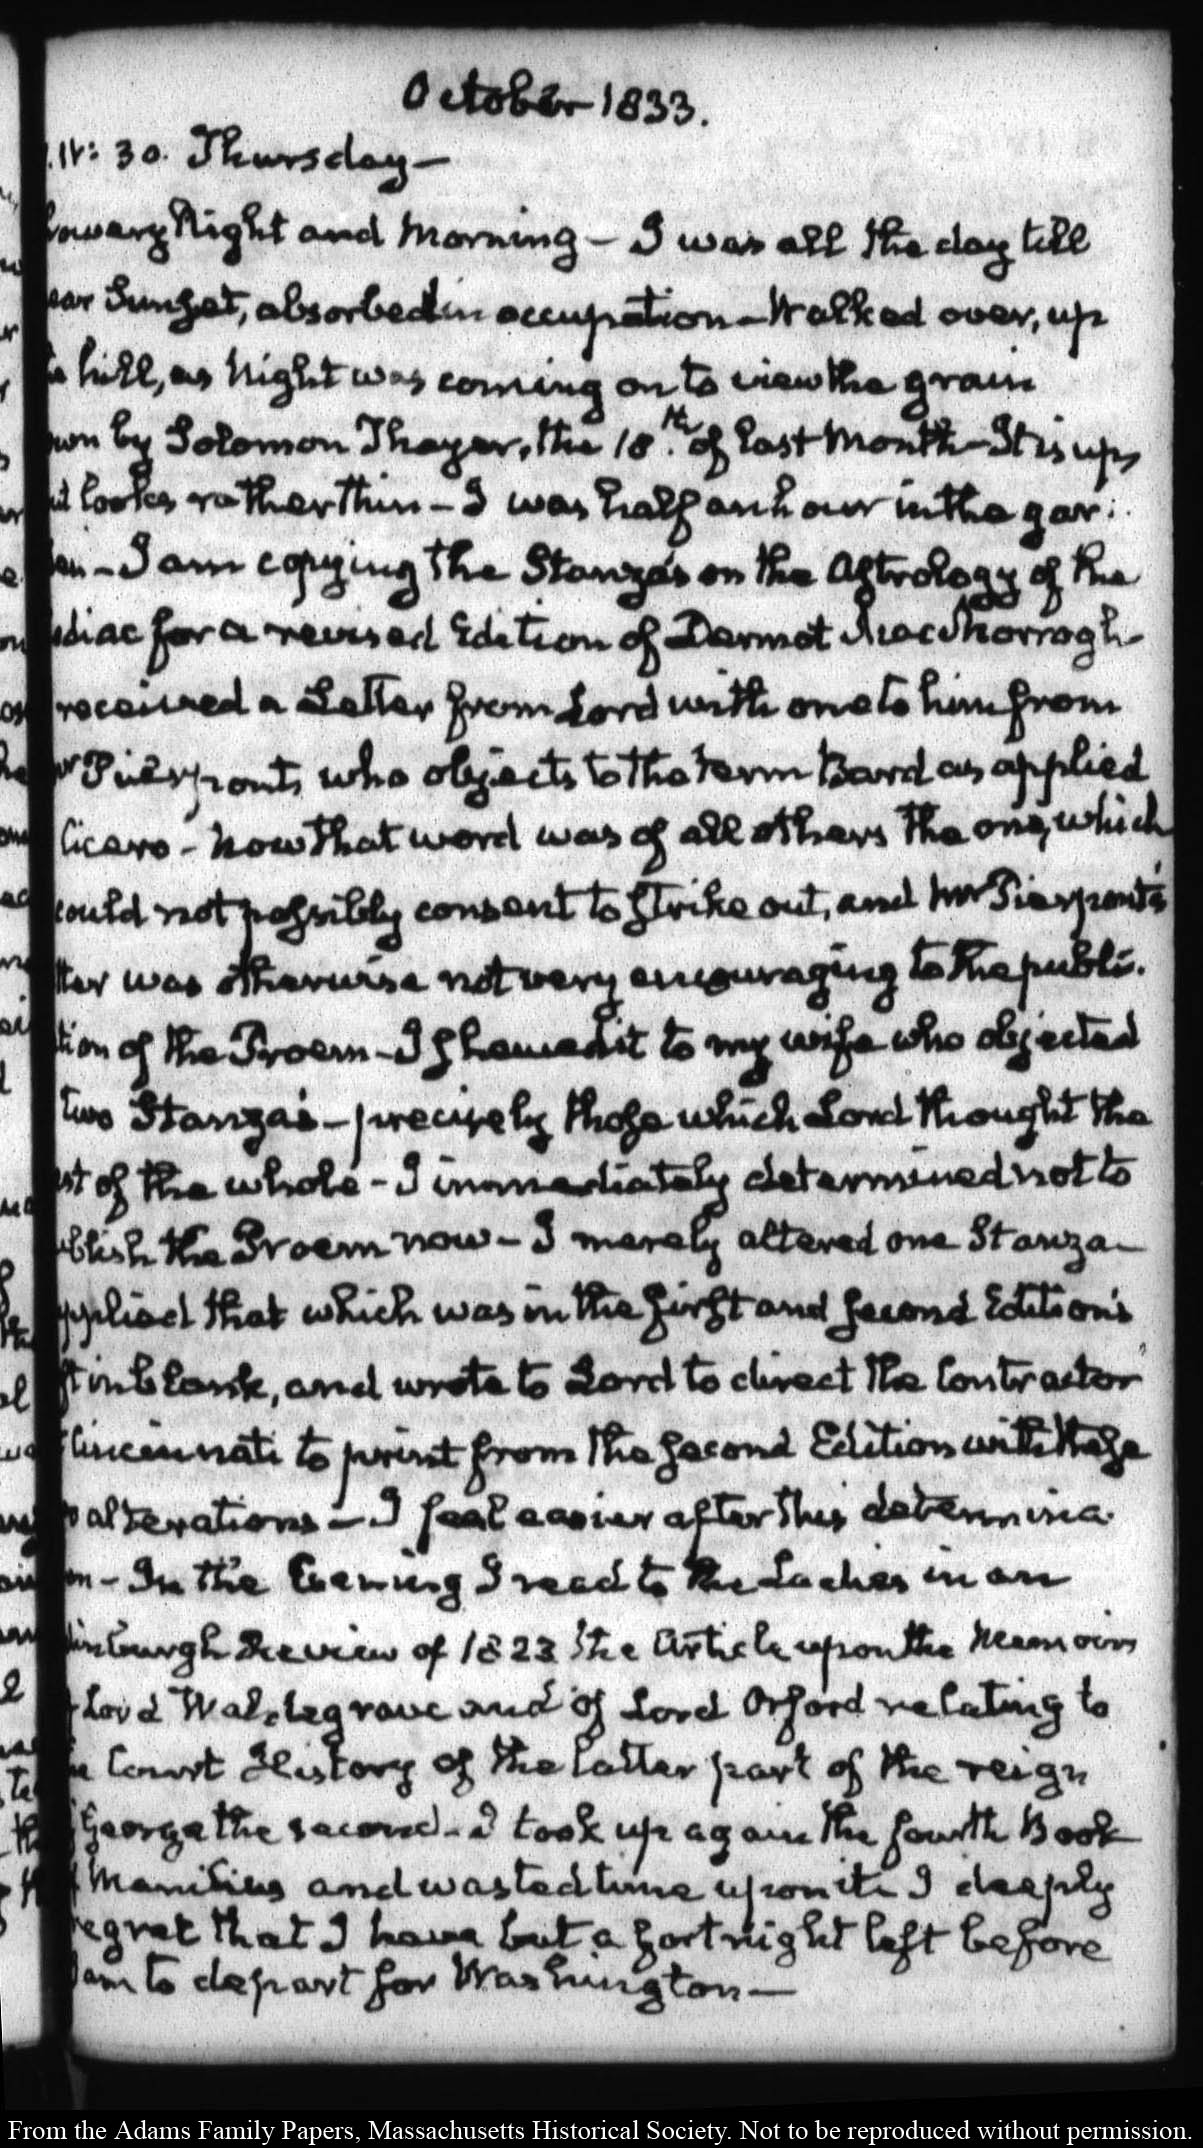 October 1833.
IV: 30. Thursday—
Night and Morning – I was all the day till
Sunset, absorbed in occupation – Walked over, up
hill, as Night was coming on to view the grain
by Solomon Thayer, the 18th. of last Month – It is up,
looks rather thin – I was half an hour in the gar:
– I am copying the Stanza's on the Astrology of the
for a revised Edition of Dermot MacMorrogh–
received a Letter from Lord with one to him from
Pierpont, who objects to the term Bard as applied
Cicero – Now that word was of all others the one, which
could not possibly consent to strike out, and Mr Pierpont's
was otherwise not very encouraging to the publi.
of the Proem – I shewed it to my wife who objected
two Stanza's – precisely those which Lord thought the
of the whole – I immediately determined not to
the Proem now – I merely altered one Stanza –
that which was in the first and second Edition's
in blank, and wrote to Lord to direct the Contractor
Cincinnati to print from the second Edition with these
alterations – I feel easier after this determina.
– In the Evening I read to the Ladies in an
Review of 1823 the Article upon the Memoirs
Lord Waldegrave and of Lord Orford relating to
Court History of the latter part of the reign
George the second – I took up again the fourth Book
Manilius and wasted time upon it – I deeply
regret that I have but a fortnight left before
I am to depart for Washington —
From the Adams Family Papers, Massachusetts Historical Society. Not to be reproduced without permission.